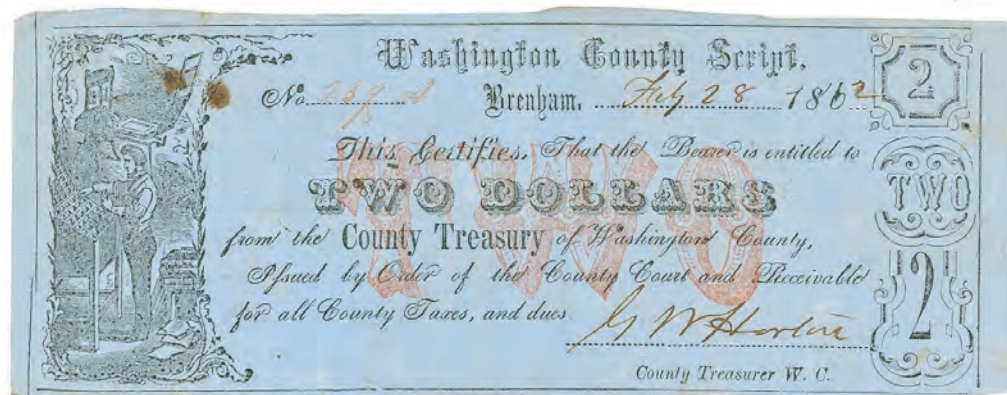 Washington County Script.
2
No. 239 A Brenham, Feb 28 1862
This Certifies, That the Bearer is entitled to
TWO DOLLARS
TWO
TWO
from the County Treasury of Washington County,
Issued by Order of the County Court and Receivable
2
for all County Taxes, and dues.
G W Horton
County Treasurer W. C.